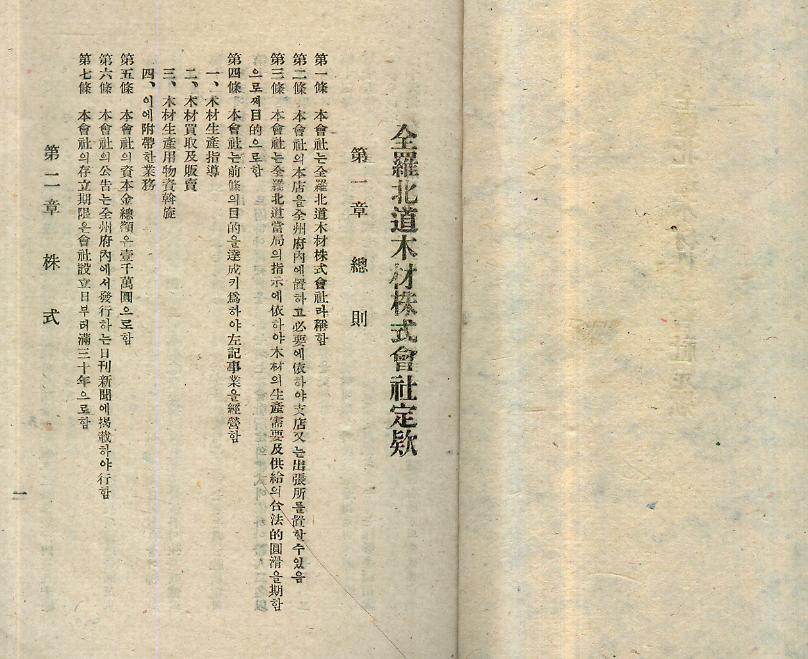 全羅北道木材株式會社定款
第一章 總則
第一條 本會社는全羅北道木材株式會社라稱함
第二條 本會社의本店을全州府內에置하고必要에依하야支店又는出張所를置할수있음
第三條 本會社는全羅北道當局의指示에依하야木材의生產需要及供給의合法的圓滑을期함
으로써目的으로함
第四條 本會社는前條의目的을達成키爲하야左記事業을經營함
一、木材生產指導
二、木材買取及販賣
三、木材生產用物資斡旋
四、이에附帶한業務
第五條 本會社의資本金總額은壹千萬圓으로함
第六條 本會社의公告는全州府內에서發行하는日刊新聞에揭載하야行함
第七條 本會社의存立期限은會社設立日부터滿三十年으로함
第二章 株式
一